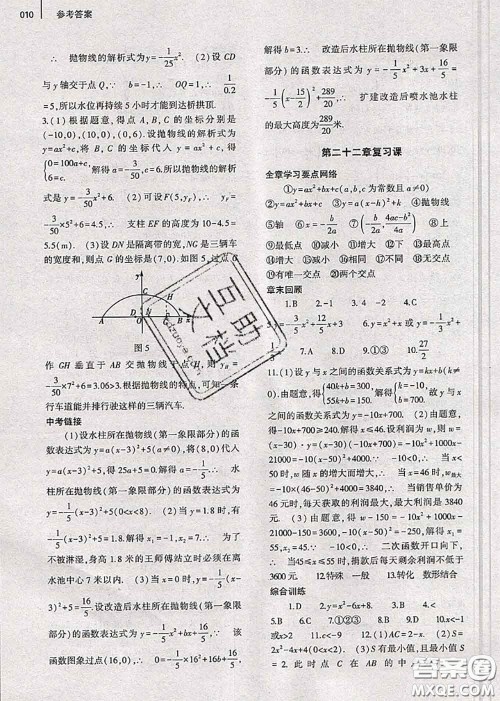 010 参考答案
∴ 抛物线的解析式为y=-1/25x². (2)设CD
与y轴交于点Q,∵ b=-1,∴ OQ=1,∴ 1/0.2
=5,所以水位再持续5小时才能到达桥拱顶.
3.(1)根据题意,得点A,B,C的坐标分别是
(-10,0),(10,0),(0,6).设抛物线的解析式
为y=ax²+c,将B,C的坐标代入y=ax²+c,得
{c=6, 100a+c, 解得a=-3/50,c=6.所以抛物线的表达
式是y=-3/50x²+6. (2)可设F(5,y_F),∴ y_F=
-3/50×5²+6=4.5,∴ 支柱EF的高度为10-4.5=
5.5(m). (3)设DN是隔离带的宽,NG是三辆车
的宽度和,则点G的坐标是(7,0).如图5,过点G
图5
作GH垂直于AB交抛物线于点H,则y_H=
-3/50×7²+6=3.06>3.根据抛物线的特点,可知一条
行车道能并排行驶这样的三辆汽车.
中考链接
(1)设水柱所在抛物线(第一象限部分)的函
数表达式为y=a(x-3)²+5,将(8,0)代入
y=a(x-3)²+5,得25a+5=0.解得a=-1/5.∴ 水
柱所在抛物线(第一象限部分)的函数表达式为
y=-1/5(x-3)²+5(0<x<8). (2)当y=1.8时,有
-1/5(x-3)²+5=1.8.解得x₁=-1,x₂=7.∴ 为了
不被淋湿,身高1.8米的王师傅站立时必须在离
水池中心7米以内. (3)当x=0时,y=-1/5(x-
3)²+5=16/5.设改造后水柱所在抛物线(第一象限
部分)的函数表达式为y=-1/5x²+bx+16/5.∵ 该
函数图象过点(16,0),∴ 0=-1/5×16²+16b+16/5,
解得b=3.∴ 改造后水柱所在抛物线(第一象限
部分)的函数表达式为y=-1/5x²+3x+16/5=
-1/5(x-15/2)²+289/20.∴ 扩建改造后喷水池水柱
的最大高度为289/20米.
第二十二章复习课
全章学习要点网络
①y=ax²+bx+c(a,b,c为常数且a≠0)
②y=ax²+bx+c ③y=a(x-h)²+k ④抛物线
⑤轴 ⑥x=-b/2a ⑦(-b/2a,(4ac-b²)/4a) ⑧上
⑨最低点 ⑩减小 ⑪增大 ⑫下 ⑬最高点
⑭增大 ⑮减小 ⑯小 ⑰大 ⑱没有交点
⑲有唯一交点 ⑳两个交点
章末回顾
=-3/5x²+12/5x+3 6.y=x²-x
+2 7.D 8.x<-2 9.①③ 10.27/2
11.(1)设y与x之间的函数关系式为y=kx+b(k
≠0).由题意,得{40k+b=300, 55k+b=150, 解得{k=-10, b=700.故y与x
之间的函数关系式为y=-10x+700. (2)由题
意,得-10x+700≥240.解得x≤46.设利润为w,则w=
(x-30)·y=(x-30)(-10x+700)=-10x²+1000x-
21000=-10(x-50)²+4000.∵ -10<0,∴ 当x<
50时,w随x的增大而增大,∴ 当x=46时,w最大=
-10×(46-50)²+4000=3840,∴ 当销售单价为
46元时,每天获取的利润最大,最大利润是3840
元. (3)由题意,得w-150=-10x²+1000x-
21000-150=3600,-10(x-50)²=-250.解得x₁=
55,x₂=45.∴ 由题意,二次函数开口向下,∴ 当
45≤x≤55时,捐款后每天剩余利润不低于
3600元. 12.特殊 一般 13.转化 数形结合
综合训练
1.B 2.D 3.B 4.y=x²-6x+8 5.C
6.x²-2x 7.①②③ 8.B 9.0 10.x<-1
或x>2 11.x<-9 12.(1)AC=2-x. (2)S=
2x²-4x+4(0<x<2). (3)S有最小值,且最小值
S=2.此时点C在AB的中
互助文档
答案圈
MXQE.COM